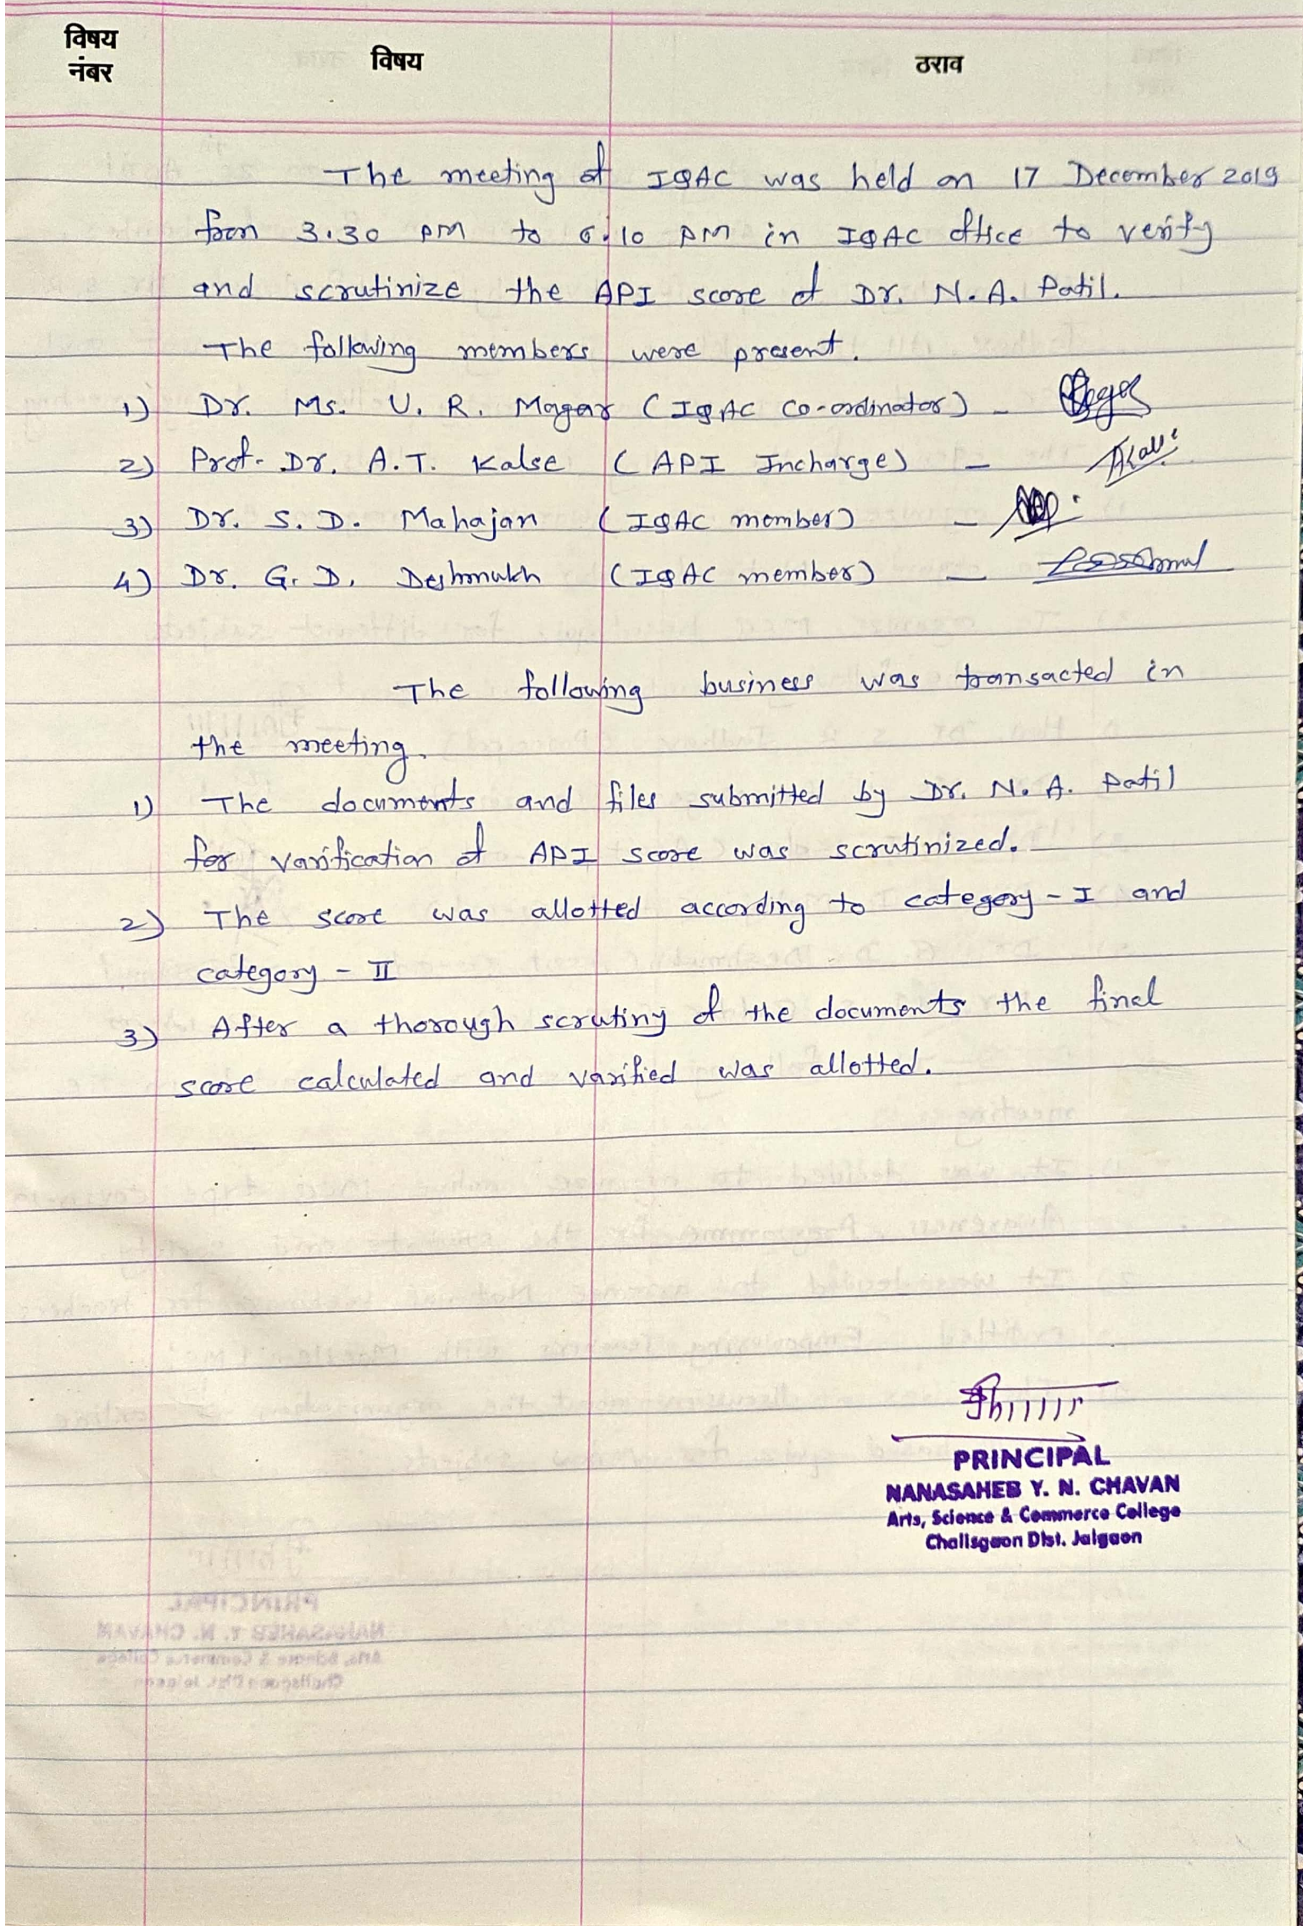 विषय नंबर
विषय
ठराव
The meeting of IQAC was held on 17 December 2019
from 3.30 PM to 6.10 PM in IQAC office to verify
and scrutinize the API score of Dr. N. A. Patil.
The following members were present.
1) Dr. Ms. U. R. Magar (IQAC Co-ordinator) -
2) Prof. Dr. A. T. Kalse (API Incharge) -
3) Dr. S. D. Mahajan (IQAC member) -
4) Dr. G. D. Deshmukh (IQAC member) -
The following business was transacted in
the meeting.
1) The documents and files submitted by Dr. N. A. Patil
for varification of API score was scrutinized.
2) The score was allotted according to category - I and
category - II
3) After a thorough scrutiny of the documents the final
score calculated and varified was allotted.
PRINCIPAL
NANASAHEB Y. N. CHAVAN
Arts, Science & Commerce College
Chalisgaon Dist. Jalgaon